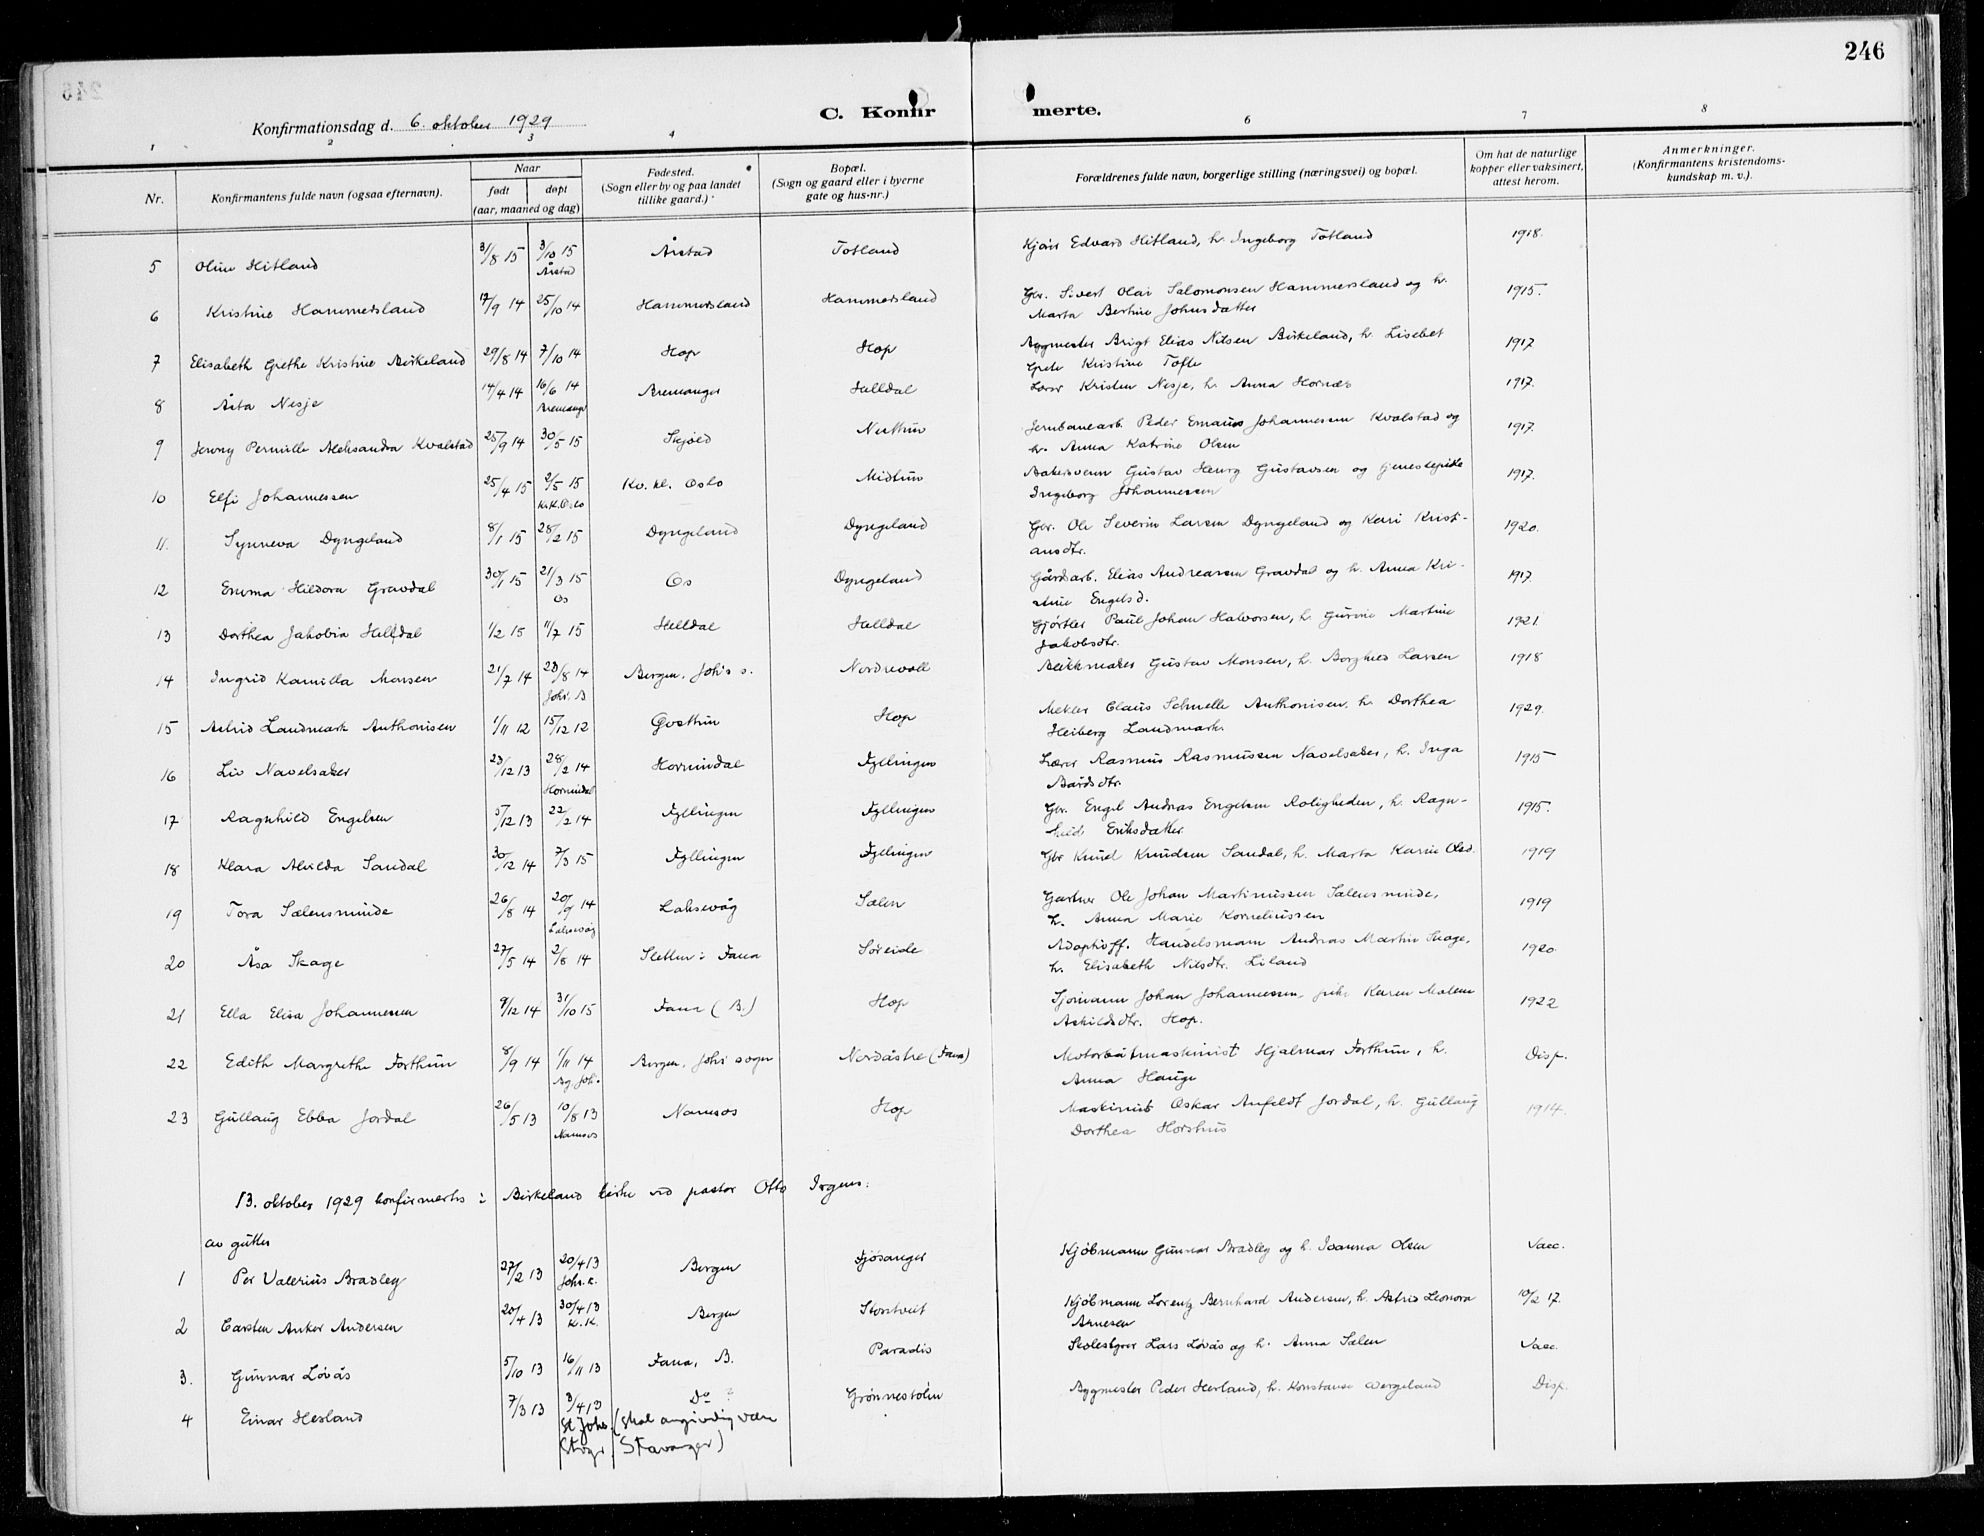 246
C. Konfirmerte.
Konfirmationsdag d. 6. oktober 1929
1 2 3 4 6 7 8
Nr.
Konfirmantens fulde navn (ogsaa efternavn).
Naar
født døpt
(aar, maaned og dag)
Fødested.
(Sogn eller by og paa landet
tillike gaard.)
Bopæl.
(Sogn og gaard eller i byerne
gate og hus-nr.)
Forældrenes fulde navn, borgerlige stilling (næringsvei) og bopæl.
Om hat de naturlige
kopper eller vaksinert,
attest herom.
Anmerkninger.
(Konfirmantens kristendoms-
kundskap m. v.).
5 Oline Hitland 31/8 15 3/10 15 Årstad Totland Edvard Hitland, h. Ingeborg Totland 1918.
Årstad
6 Kristine Hammersland 17/9 14 25/10 14 Hammersland Hammersland Gbr. Sivert Olai Salomonsen Hammersland og h. 1915.
Marta Bertine Johnsdatter
7 Elisabeth Grethe Kristine Birkeland 29/8 14 7/10 14 Hop Hop Bygmester Brigt Elias Nilsen Birkeland, h. Lisebet 1917
Grete Kristine Tofte
8 Åsta Nesje 14/4 14 16/6 14 Bremanger Helldal Lærer Kristen Nesje, h. Anna Hornæs 1917.
Bremanger
9 Jenny Pernille Aleksandra Kvalstad 25/9 14 30/5 15 Skjold Nesttun Jernbanearb. Peder Emaus Johannessen Kvalstad og 1917.
h. Anna Katrine Olsen
10 Elfi Johannessen 25/4 15 2/5 15 Kv. kl. Oslo Midttun Bakersvenn Gustav Henry Gustavsen og tjenestepike 1917.
Kv.K. Oslo Ingeborg Johannessen
11. Synneva Dyngeland 8/1 15 28/2 15 Dyngeland Dyngeland Gbr. Ole Severin Larsen Dyngeland og Kari Krist- 1920.
ansdtr.
12 Emma Hildora Gravdal 30/1 15 21/3 15 Os Dyngeland Gårdsarb. Elias Andreassen Gravdal og h. Anna Kri- 1917.
Os stine Engelsd.
13 Dorthea Jakobia Helldal 1/2 15 11/7 15 Helldal Helldal Gjørtler Paul Johan Halvorsen, h. Gurine Martine 1921.
Jakobsdtr.
14 Ingrid Kamilla Monsen 21/7 14 23/8 14 Bergen, Joh's s. Nordrevoll Blikkmaker Gustav Monsen, h. Borghild Larsen 1918
15 Astrid Landmark Anthonisen 1/11 12 15/12 12 Hop Mekler Claus Schnelle Anthonisen, h. Dorthea 1929.
Heiberg Landmark.
16 Liv Navelsaker 23/12 13 28/2 14 Hornindal Fyllingen Lærer Rasmus Rasmussen Navelsaker, h. Inga 1915
Hornindal Bårdsdtr.
17 Ragnhild Engelsen 5/12 13 22/2 14 Fyllingen Fyllingen Gbr. Engel Andreas Engelsen Roligheden, h. Ragn- 1915.
hild Eriksdatter
18 Klara Alvilda Sandal 30/12 14 7/3 15 Fyllingen Fyllingen Gbr Knud Knudsen Sandal, h. Marta Karine Olsd. 1919
19 Tora Sælensminde 26/8 14 20/9 14 Laksevåg Sælen Gartner Ole Johan Martinussen Sælensminde, 1919
Laksevåg h. Anna Marie Korneliussen
20 Åsa Skage 27/5 14 2/8 14 Sletten i Fana Søreide Adoptivff. Handelsmann Andreas Martin Skage, 1920.
h. Elisabeth Nilsdtr. Liland
21 Ella Elisa Johannessen 9/12 14 31/10 15 Fana (B.) Hop Sjømann Johan Johannessen, pike Karen Malene 1922
Askildsdtr. Hop.
22 Edith Margrethe Forthun 8/9 14 1/11 14 Bergen, Joh's sogn Nordåstre (Fana) Motorbåtmaskinist Hjalmar Forthun, h. Disp.
Bg. Joh. Anna Hauge
23 Gullaug Ebba Jordal 26/5 13 10/8 13 Namsos Hop Maskinist Oskar Anfeldt Jordal, h. Gullaug 1914.
Namsos Dorthea Horshus
13. oktober 1929 konfirmertes i Birkeland kirke ved pastor Otto Irgens:
av gutter
1 Per Valerius Bradley 27/2 13 20/4 13 Bergen Fjøsanger Kjøbmann Gunnar Bradley og h. Joanna Olsen Vacc.
Joh. k.
2 Carsten Anker Andersen 20/4 13 30/4 13 Bergen Storetveit Kjøbmann Lorentz Bernhard Andersen, h. Astrid Leonora 10/2 17.
K. K. Arnesen
3. Gunnar Løvås 5/10 13 16/11 13 Fana, B. Paradis Skolestyrer Lars Løvås og h. Anna Sælen Vacc.
4 Einar Herland 7/3 13 3/4 13 Do ? Grønnestølen Bygmester Peder Herland, h. Konstanse Wergeland Disp.
St Johs. (skal angivelig være
Stvgr. Stavanger)